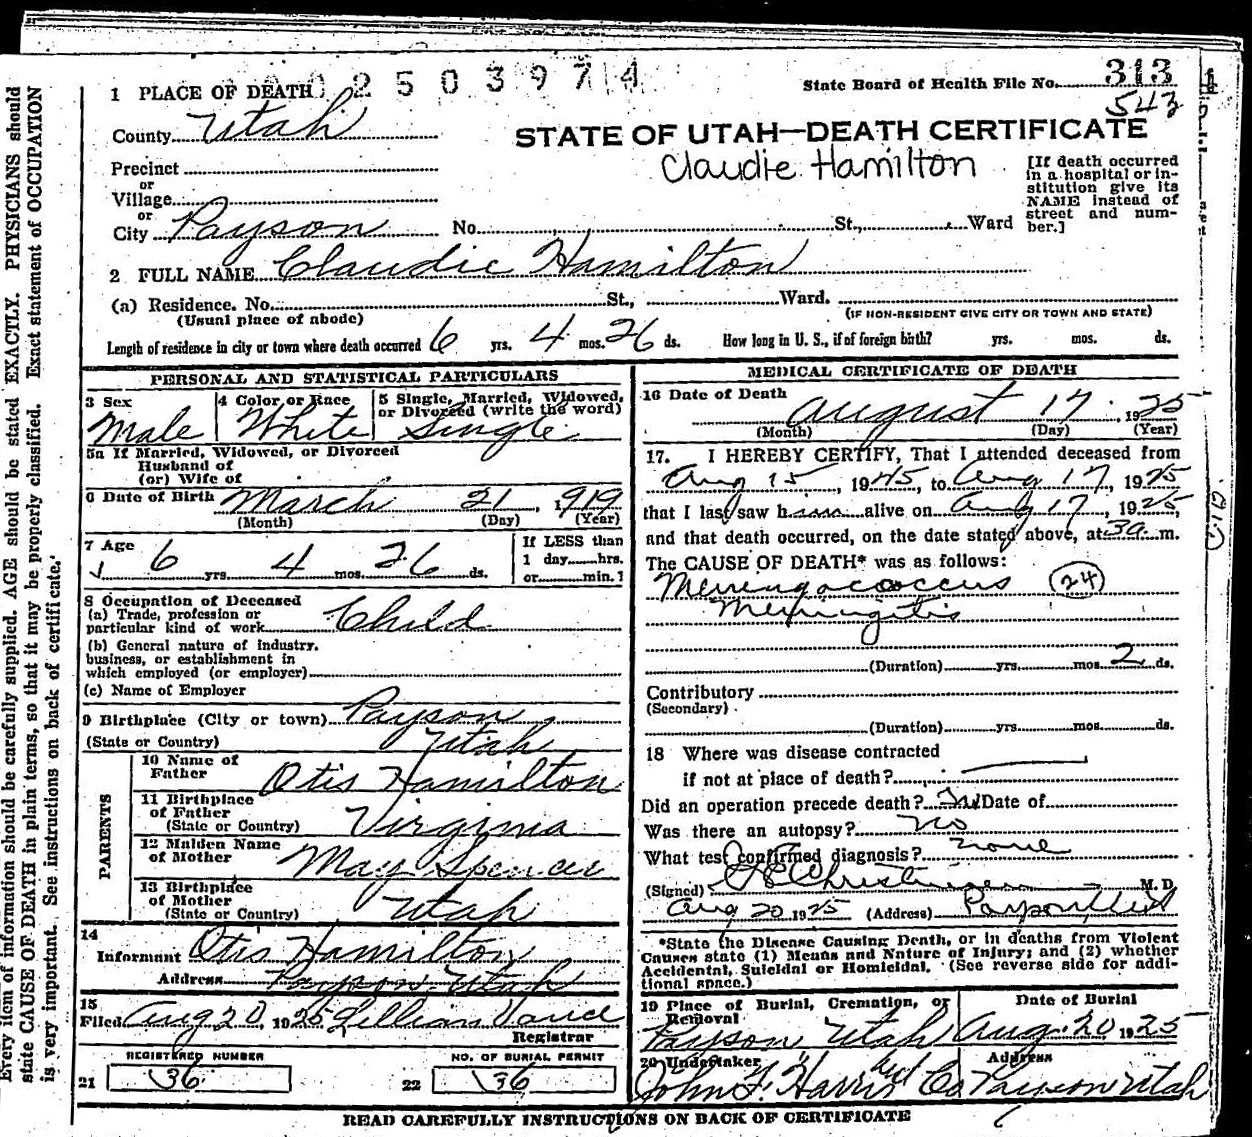 Every item of information should be carefully supplied. AGE should be stated EXACTLY. PHYSICIANS should
state CAUSE OF DEATH in plain terms, so that it may be properly classified. Exact statement of OCCUPATION
is very important. See instructions on back of certificate.
2503974
State Board of Health File No. 313
543
1 PLACE OF DEATH
County Utah
STATE OF UTAH—DEATH CERTIFICATE
Claudie Hamilton
Precinct
or
Village
or
City Payson No. St., Ward
[If death occurred
in a hospital or in-
stitution give its
NAME instead of
street and num-
ber.]
2 FULL NAME Claudie Hamilton
(a) Residence. No. St., Ward.
(Usual place of abode)
(IF NON-RESIDENT GIVE CITY OR TOWN AND STATE)
Length of residence in city or town where death occurred 6 yrs. 4 mos. 26 ds. How long in U. S., if of foreign birth? yrs. mos. ds.
PERSONAL AND STATISTICAL PARTICULARS
3 Sex
Male
4 Color or Race
White
5 Single, Married, Widowed,
or Divorced (write the word)
Single
5a If Married, Widowed, or Divorced
Husband of
(or) Wife of
6 Date of Birth March 21, 1919
(Month) (Day) (Year)
7 Age 6 yrs. 4 mos. 26 ds.
If LESS than
1 day hrs.
or min.?
8 Occupation of Deceased
(a) Trade, profession or
particular kind of work Child
(b) General nature of industry,
business, or establishment in
which employed (or employer)
(c) Name of Employer
9 Birthplace (City or town) Payson
(State or Country) Utah
PARENTS
10 Name of
Father Otis Hamilton
11 Birthplace
of Father
(State or Country) Virginia
12 Maiden Name
of Mother May Spencer
13 Birthplace
of Mother
(State or Country) Utah
14
Informant Otis Hamilton
Address Payson Utah
15
Filed Aug 20, 1925 Lillian Vance
Registrar
REGISTERED NUMBER
21 36
NO. OF BURIAL PERMIT
22 36
MEDICAL CERTIFICATE OF DEATH
16 Date of Death August 17, 1925
(Month) (Day) (Year)
17. I HEREBY CERTIFY, That I attended deceased from
Aug 15, 1925, to Aug 17, 1925
that I last saw him alive on Aug 17, 1925,
and that death occurred, on the date stated above, at 3 a. m.
The CAUSE OF DEATH* was as follows:
Meningococcus 24
Meningitis
(Duration) yrs. mos. 2 ds.
Contributory
(Secondary)
(Duration) yrs. mos. ds.
18 Where was disease contracted
if not at place of death?
Did an operation precede death? Date of
Was there an autopsy? no
What test confirmed diagnosis? none
(Signed) M. D.
Aug 20 1925 (Address) Payson Utah
*State the Disease Causing Death, or in deaths from Violent
Causes state (1) Means and Nature of Injury; and (2) whether
Accidental, Suicidal or Homicidal. (See reverse side for addi-
tional space.)
19 Place of Burial, Cremation, or
Removal
Payson Utah
Date of Burial
Aug. 20 1925
20 Undertaker
John F. Harris Co.
Address
Payson Utah
READ CAREFULLY INSTRUCTIONS ON BACK OF CERTIFICATE